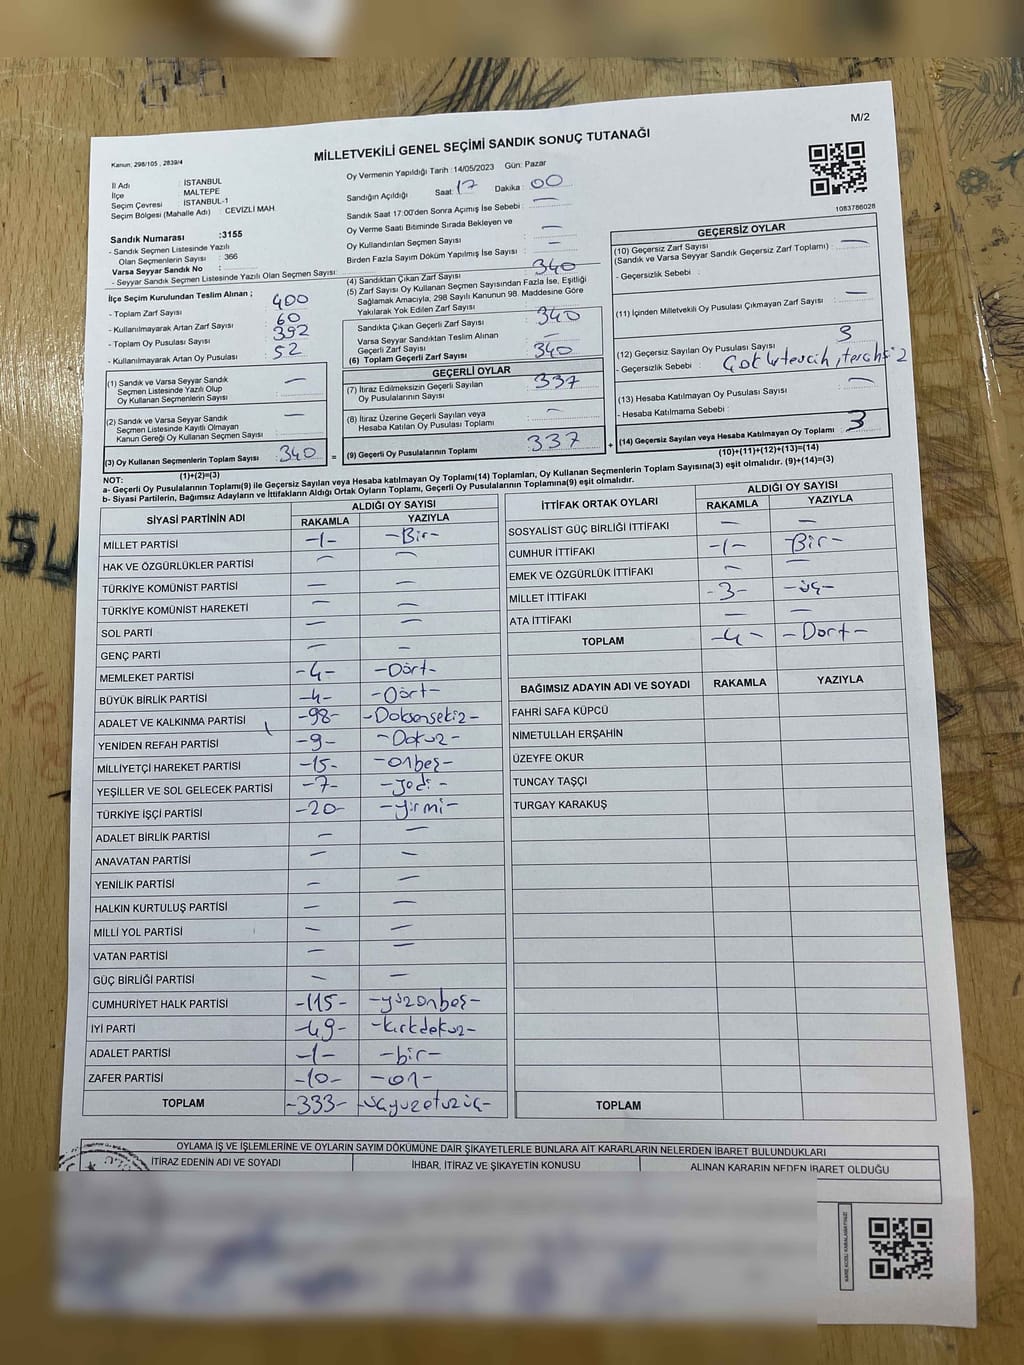 M/2
Kanun; 298/105 , 2839/4
MİLLETVEKİLİ GENEL SEÇİMİ SANDIK SONUÇ TUTANAĞI
İl Adı : İSTANBUL
İlçe : MALTEPE
Seçim Çevresi : İSTANBUL-1
Seçim Bölgesi (Mahalle Adı) : CEVİZLİ MAH.
Sandık Numarası :3155
- Sandık Seçmen Listesinde Yazılı
Olan Seçmenlerin Sayısı : 366
Varsa Seyyar Sandık No :
- Seyyar Sandık Seçmen Listesinde Yazılı Olan Seçmen Sayısı:
Oy Vermenin Yapıldığı Tarih :14/05/2023 Gün: Pazar
Sandığın Açıldığı Saat: 17 Dakika : 00
Sandık Saat 17:00'den Sonra Açımış İse Sebebi : —
Oy Verme Saati Bitiminde Sırada Bekleyen ve
Oy Kullandırılan Seçmen Sayısı : —
Birden Fazla Sayım Döküm Yapılmış İse Sayısı : —
1083786028
İlçe Seçim Kurulundan Teslim Alınan ;
- Toplam Zarf Sayısı : 400
- Kullanılmayarak Artan Zarf Sayısı : 60
- Toplam Oy Pusulası Sayısı : 392
- Kullanılmayarak Artan Oy Pusulası : 52
(1) Sandık ve Varsa Seyyar Sandık
Seçmen Listesinde Yazılı Olup
Oy Kullanan Seçmenlerin Sayısı : —
(2) Sandık ve Varsa Seyyar Sandık
Seçmen Listesinde Kayıtlı Olmayan
Kanun Gereği Oy Kullanan Seçmen Sayısı : —
(3) Oy Kullanan Seçmenlerin Toplam Sayısı : 340 =
(1)+(2)=(3)
(4) Sandıktan Çıkan Zarf Sayısı : 340
(5) Zarf Sayısı Oy Kullanan Seçmen Sayısından Fazla İse, Eşitliği
Sağlamak Amacıyla, 298 Sayılı Kanunun 98. Maddesine Göre
Yakılarak Yok Edilen Zarf Sayısı :
Sandıkta Çıkan Geçerli Zarf Sayısı : 340
Varsa Seyyar Sandıktan Teslim Alınan
Geçerli Zarf Sayısı :
(6) Toplam Geçerli Zarf Sayısı : 340
GEÇERLİ OYLAR
(7) İtiraz Edilmeksizin Geçerli Sayılan
Oy Pusulalarının Sayısı : 337
(8) İtiraz Üzerine Geçerli Sayılan veya
Hesaba Katılan Oy Pusulası Toplamı : —
(9) Geçerli Oy Pusulalarının Toplamı : 337 +
GEÇERSİZ OYLAR
(10) Geçersiz Zarf Sayısı
(Sandık ve Varsa Seyyar Sandık Geçersiz Zarf Toplamı) : —
- Geçersizlik Sebebi :
(11) İçinden Milletvekili Oy Pusulası Çıkmayan Zarf Sayısı : —
(12) Geçersiz Sayılan Oy Pusulası Sayısı : 3
- Geçersizlik Sebebi :
(13) Hesaba Katılmayan Oy Pusulası Sayısı : —
- Hesaba Katılmama Sebebi :
(14) Geçersiz Sayılan veya Hesaba Katılmayan Oy Toplamı : 3
(10)+(11)+(12)+(13)=(14)
NOT:
a- Geçerli Oy Pusulalarının Toplamı(9) ile Geçersiz Sayılan veya Hesaba katılmayan Oy Toplamı(14) Toplamları, Oy Kullanan Seçmenlerin Toplam Sayısına(3) eşit olmalıdır. (9)+(14)=(3)
b- Siyasi Partilerin, Bağımsız Adayların ve İttifakların Aldığı Ortak Oyların Toplamı, Geçerli Oy Pusulalarının Toplamına(9) eşit olmalıdır.
SİYASİ PARTİNİN ADI ALDIĞI OY SAYISI
RAKAMLA YAZIYLA
MİLLET PARTİSİ -1- -Bir-
HAK VE ÖZGÜRLÜKLER PARTİSİ — —
TÜRKİYE KOMÜNİST PARTİSİ — —
TÜRKİYE KOMÜNİST HAREKETİ — —
SOL PARTİ — —
GENÇ PARTİ — —
MEMLEKET PARTİSİ -4- -Dört-
BÜYÜK BİRLİK PARTİSİ -4- -Dört-
ADALET VE KALKINMA PARTİSİ -98- -Doksensekiz-
YENİDEN REFAH PARTİSİ -9- -Dokuz-
MİLLİYETÇİ HAREKET PARTİSİ -15- -onbeş-
YEŞİLLER VE SOL GELECEK PARTİSİ -7- -Yedi-
TÜRKİYE İŞÇİ PARTİSİ -20- -yirmi-
ADALET BİRLİK PARTİSİ — —
ANAVATAN PARTİSİ — —
YENİLİK PARTİSİ — —
HALKIN KURTULUŞ PARTİSİ — —
MİLLİ YOL PARTİSİ — —
VATAN PARTİSİ — —
GÜÇ BİRLİĞİ PARTİSİ — —
CUMHURİYET HALK PARTİSİ -115- -yüzonbeş-
İYİ PARTİ -49- -kırkdokuz-
ADALET PARTİSİ -1- -bir-
ZAFER PARTİSİ -10- -on-
TOPLAM -333- -üçyüzotuzüç-
İTTİFAK ORTAK OYLARI ALDIĞI OY SAYISI
RAKAMLA YAZIYLA
SOSYALİST GÜÇ BİRLİĞİ İTTİFAKI — —
CUMHUR İTTİFAKI -1- Bir-
EMEK VE ÖZGÜRLÜK İTTİFAKI — —
MİLLET İTTİFAKI -3- -üç-
ATA İTTİFAKI — —
TOPLAM -4- -Dört-
BAĞIMSIZ ADAYIN ADI VE SOYADI RAKAMLA YAZIYLA
FAHRİ SAFA KÜPCÜ
NİMETULLAH ERŞAHİN
ÜZEYFE OKUR
TUNCAY TAŞÇI
TURGAY KARAKUŞ
TOPLAM
OYLAMA İŞ VE İŞLEMLERİNE VE OYLARIN SAYIM DÖKÜMÜNE DAİR ŞİKAYETLERLE BUNLARA AİT KARARLARIN NELERDEN İBARET BULUNDUKLARI
İTİRAZ EDENİN ADI VE SOYADI İHBAR, İTİRAZ VE ŞİKAYETİN KONUSU ALINAN KARARIN NEDEN İBARET OLDUĞU